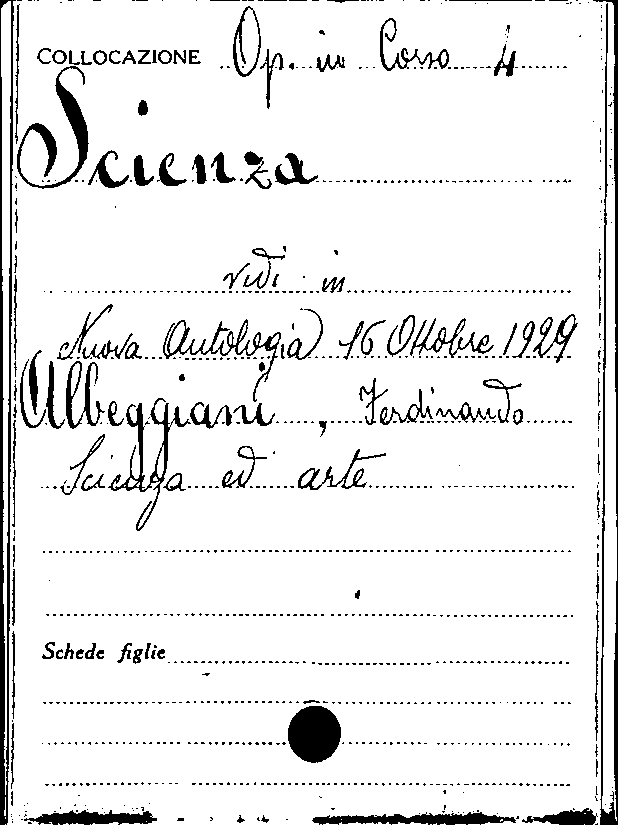 COLLOCAZIONE Op. in Corso 4
Scienza
vedi in
Nuova Antologia 16 Ottobre 1929
Albeggiani, Ferdinando
Scienza ed arte
Schede figlie